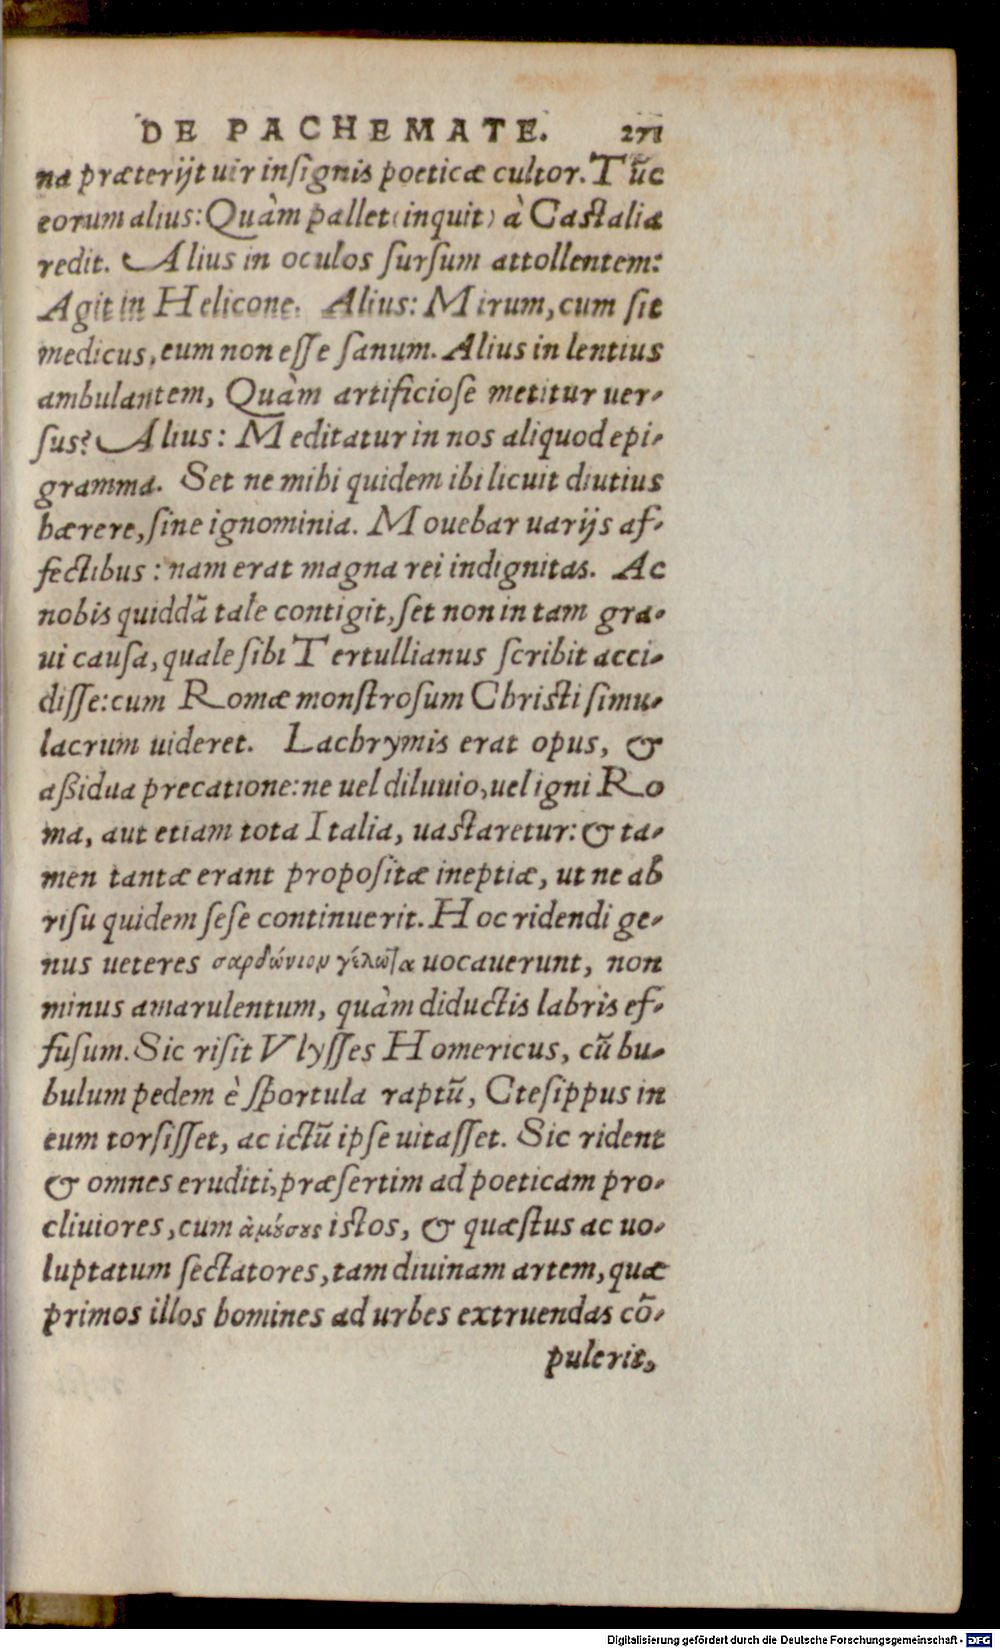 DE PACHEMATE. 271
na præterijt uir insignis poeticæ cultor. Tũc
eorum alius: Quàm pallet (inquit) à Castalia
redit. Alius in oculos sursum attollentem:
Agit in Helicone. Alius: Mirum, cum sit
medicus, eum non esse sanum. Alius in lentius
ambulantem, Quàm artificiose metitur uer-
sus? Alius: Meditatur in nos aliquod epi-
gramma. Set ne mihi quidem ibi licuit diutius
hærere, sine ignominia. Mouebar uarijs af-
fectibus: nam erat magna rei indignitas. Ac
nobis quiddã tale contigit, set non in tam gra-
ui causa, quale sibi Tertullianus scribit acci-
disse: cum Romæ monstrosum Christi simu-
lacrum uideret. Lachrymis erat opus, &
aßidua precatione: ne uel diluuio, uel igni Ro
ma, aut etiam tota Italia, uastaretur: & ta-
men tantæ erant propositæ ineptiæ, ut ne ab
risu quidem sese continuerit. Hoc ridendi ge-
nus ueteres σαρδώνιον γέλωτα uocauerunt, non
minus amarulentum, quàm diductis labris ef-
fusum. Sic risit Vlysses Homericus, cũ bu-
bulum pedem è sportula raptũ, Ctesippus in
eum torsisset, ac ictũ ipse uitasset. Sic rident
& omnes eruditi, præsertim ad poeticam pro-
cliuiores, cum ἀμούσους istos, & quæstus ac uo-
luptatum sectatores, tam diuinam artem, quæ
primos illos homines ad urbes extruendas cõ-
pulerit,
Digitalisierung gefördert durch die Deutsche Forschungsgemeinschaft - DFG